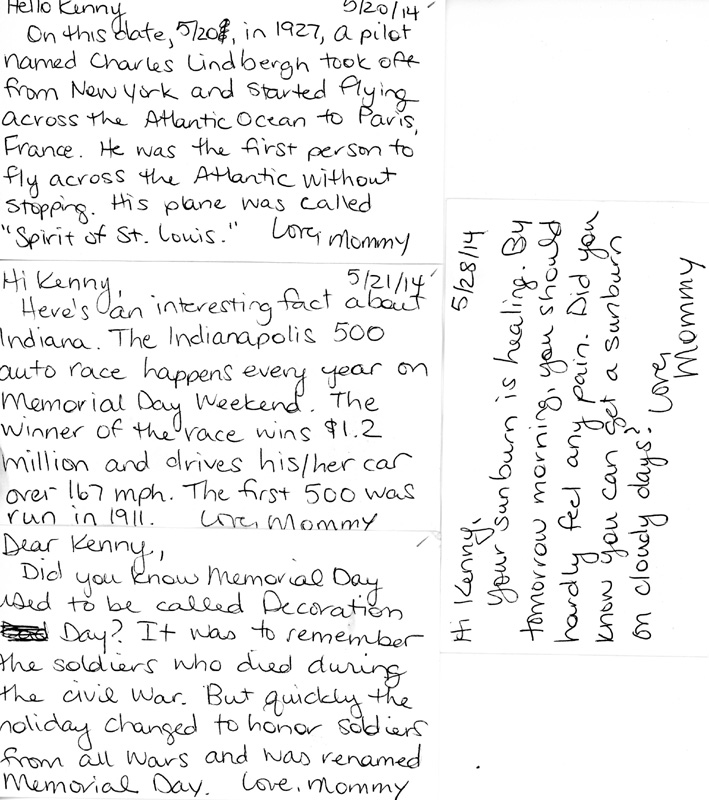 Hello Kenny 5/20/14
On this date, 5/20, in 1927, a pilot
named Charles Lindbergh took off
from New York and started flying
across the Atlantic Ocean to Paris,
France. He was the first person to
fly across the Atlantic without
stopping. His plane was called
"Spirit of St. Louis." Love, Mommy
Hi Kenny, 5/21/14
Here's an interesting fact about
Indiana. The Indianapolis 500
auto race happens every year on
Memorial Day Weekend. The
winner of the race wins $1.2
million and drives his/her car
over 167 mph. The first 500 was
run in 1911. Love, Mommy
Dear Kenny,
Did you know Memorial Day
used to be called Decoration
Day? It was to remember
the soldiers who died during
the civil War. But quickly the
holiday changed to honor soldiers
from all wars and was renamed
Memorial Day. Love, Mommy
Hi Kenny, 5/28/14
Your sunburn is healing. By
tomorrow morning, you should
hardly feel any pain. Did you
know you can get a sunburn
on cloudy days? Love,
Mommy